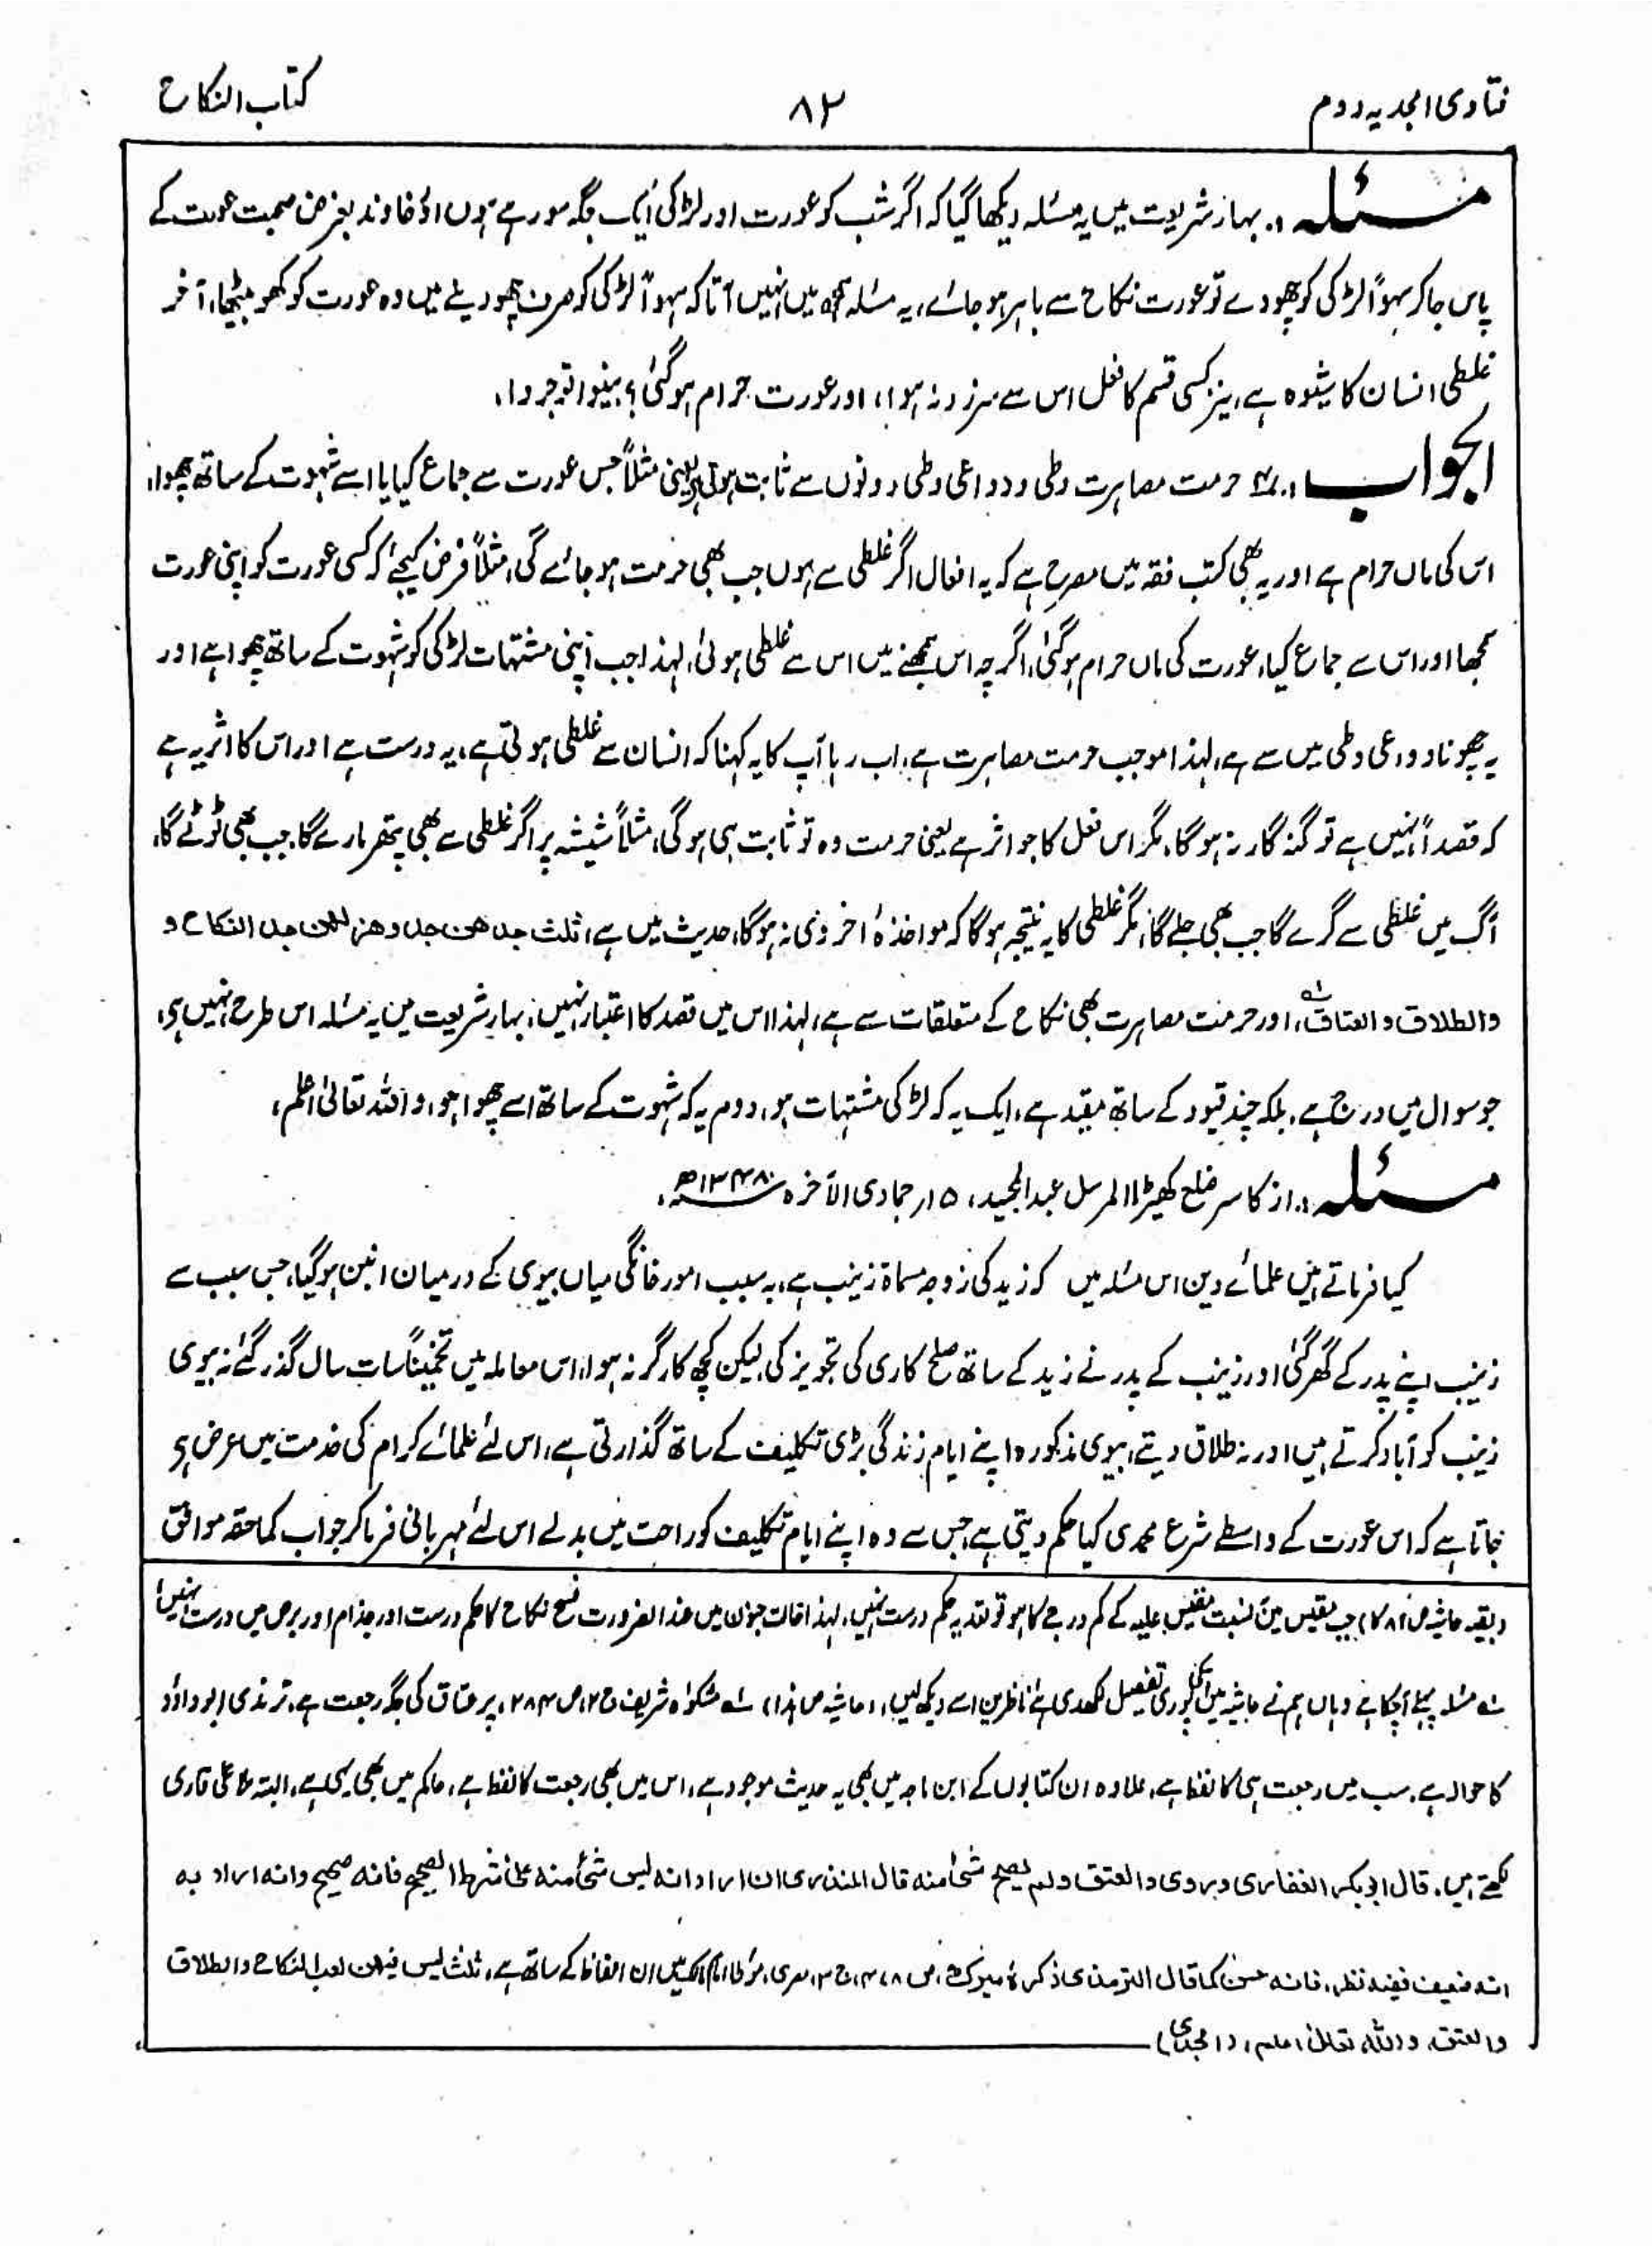 فتاوی امجدیہ دوم ۸۲ کتاب النکاح
مسئلہ :۔ بہار شریعت میں یہ مسئلہ دیکھا گیا کہ اگر شب کو عورت اور لڑکی ایک جگہ سو رہے ہوں اور خاوند بغرض صحبت عورت کے
پاس جا کر سہواً لڑکی کو چھو دے تو عورت نکاح سے باہر ہو جائے، یہ مسئلہ سمجھ میں نہیں آتا کہ سہواً لڑکی کو صرف چھو دینے میں وہ عورت کو کھو بیٹھا، آخر
غلطی انسان کا شیوہ ہے، نیز کسی قسم کا فعل اس سے سرزد نہ ہوا، اور عورت حرام ہو گئی؟ بینوا توجروا،
الجواب :۔ حرمت مصاہرت وطی و دواعی وطی دونوں سے ثابت ہوتی ہے یعنی مثلاً جس عورت سے جماع کیا یا اسے شہوت کے ساتھ چھوا،
اس کی ماں حرام ہے اور یہ بھی کتب فقہ میں مصرح ہے کہ یہ افعال اگر غلطی سے ہوں جب بھی حرمت ہو جائے گی، مثلاً فرض کیجئے کہ کسی عورت کو اپنی عورت
سمجھا اور اس سے جماع کیا، عورت کی ماں حرام ہو گئی، اگرچہ اس سمجھنے میں اس سے غلطی ہوئی، لہذا جب اپنی مشتہات لڑکی کو شہوت کے ساتھ چھوا ہے اور
یہ چھونا دواعی وطی میں سے ہے، لہذا موجب حرمت مصاہرت ہے، اب رہا آپ کا یہ کہنا کہ انسان سے غلطی ہوتی ہے، یہ درست ہے اور اس کا اثر یہ ہے
کہ قصداً نہیں ہے تو گنہ گار نہ ہو گا، مگر اس فعل کا جو اثر ہے یعنی حرمت وہ تو ثابت ہی ہو گی، مثلاً شیشہ پر اگر غلطی سے بھی پتھر مارے گا، جب بھی ٹوٹے گا،
آگ میں غلطی سے گرے گا جب بھی جلے گا، مگر غلطی کا یہ نتیجہ ہو گا کہ مواخذۂ اخروی نہ ہو گا، حدیث میں ہے، ثلث جدهن جد وهزلهن جد النکاح و
والطلاق والعتاق، اور حرمت مصاہرت بھی نکاح کے متعلقات سے ہے، لہذا اس میں قصد کا اعتبار نہیں، بہار شریعت میں یہ مسئلہ اس طرح نہیں ہے،
جو سوال میں درج ہے۔ بلکہ چند قیود کے ساتھ مقید ہے، ایک یہ کہ لڑکی مشتہات ہو، دوم یہ کہ شہوت کے ساتھ اسے چھوا ہو، واللہ تعالیٰ اعلم،
مسئلہ :۔ از کاسر ضلع کھیڑا المرسل عبدالمجید، ۱۵ر جمادی الآخرہ ۱۳۴۸ھ،
کیا فرماتے ہیں علمائے دین اس مسئلہ میں کہ زید کی زوجہ مسماۃ زینب ہے، بہ سبب امور خانگی میاں بیوی کے درمیان انبن ہو گیا، جس سبب سے
زینب اپنے پدر کے گھر گئی اور زینب کے پدر نے زید کے ساتھ صلح کاری کی تجویز کی، لیکن کچھ کارگر نہ ہوا، اس معاملہ میں تخمیناً سات سال گذر گئے نہ بیوی
زینب کو آباد کرتے ہیں اور نہ طلاق دیتے، بیوی مذکورہ اپنے ایام زندگی بڑی تکلیف کے ساتھ گذارتی ہے، اس لئے علمائے کرام کی خدمت میں عرض ہے
جاتا ہے کہ اس عورت کے واسطے شرع محمدی کیا حکم دیتی ہے جس سے وہ اپنے ایام تکلیف کو راحت میں بدلے اس لئے مہربانی فرما کر جواب کماحقہ موافق
(بقیہ حاشیہ ص ۸۱ کا) جب مقیس میں بنسبت مقیس علیہ کے کم درجے کا ہو تو تعدیہ حکم درست نہیں، لہذا جنون میں عند الضرورت فسخ نکاح کا حکم درست اور جذام اور برص میں درست نہیں
مسئلہ پہلے آچکا ہے وہاں ہم نے حاشیہ میں پوری تفصیل لکھدی ہے ناظرین اسے دیکھ لیں، (حاشیہ ص ہذا) مشکوٰۃ شریف ج ۲، ص ۲۸۴، پر عتاق کی جگہ رجعت ہے، ترمذی ابوداؤد
کا حوالہ ہے، سب میں رجعت ہی کا لفظ ہے، علاوہ ان کتابوں کے ابن ماجہ میں بھی یہ حدیث موجود ہے، اس میں بھی رجعت کا لفظ ہے، حاکم میں بھی یہی ہے، البتہ ملا علی قاری
لکھتے ہیں، قال ابوبکر الغفاری وبروی والعتق ولم یصح شئ منه قال المنذری ان اراد انه لیس شئ منه علی شرط الصحیح فانه صحیح وانه اراد به
انه ضعیف ففیه نظر، فانه حسن کما قال الترمذی ذکره میرک، ص ۴۷۸، ج ۳، مصری، موطا امام مالک میں ان الفاظ کے ساتھ ہے، ثلث لیس فیهن لعب النکاح والطلاق
والعتق، واللہ تعالیٰ اعلم، (امجدی)